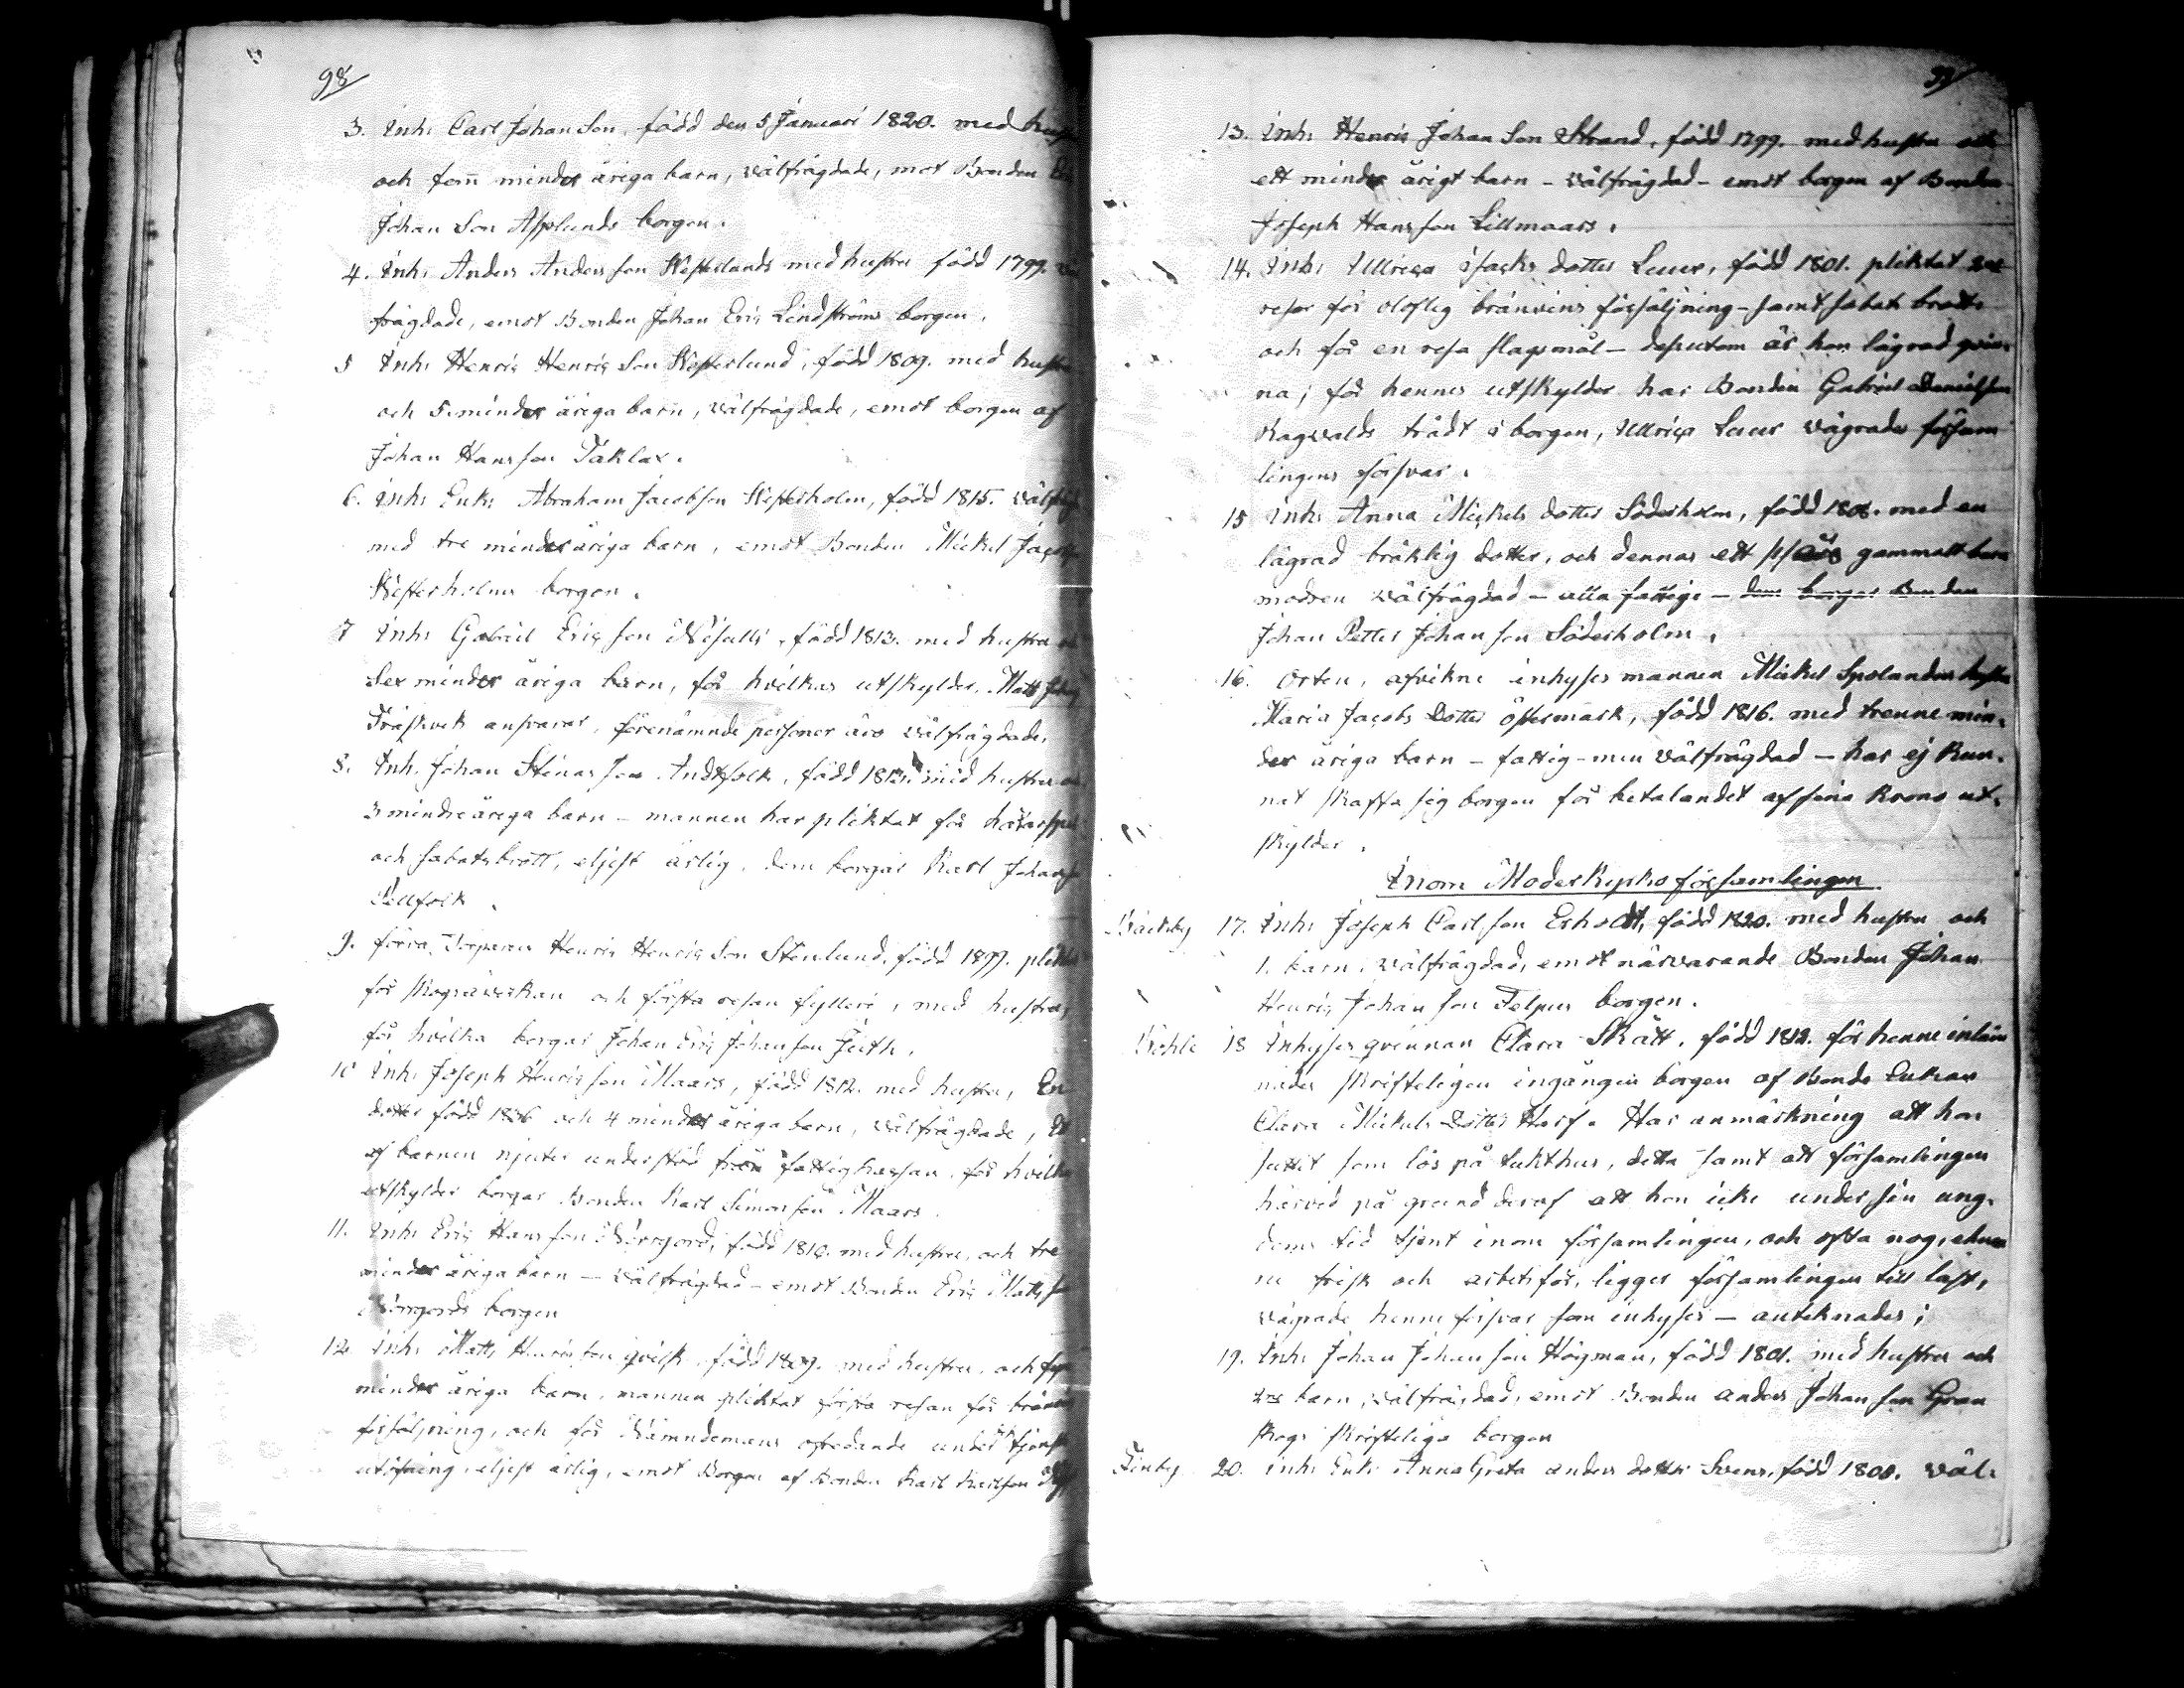 98
3. Inh: Carl Johan Son, född den 5 Januari 1820. med
och fem minder åriga barn, välfrägdade, mot Bonden
Johan Son Asplunds borgen.
4. Inh: Anders Andersson Westerlunds med hustru född 1799.
frägdade, emot Bonden Johan Eric Lindströms borgen.
5 Inh: Henric Henric Son Westerlund, född 1809. med hustru
och 5. minder åriga barn, välfrägdade, emot borgen af
Johan Hansson Taklax.
6. Inh: Enk: Abraham Jacobsson Westerholm, född 1815.
med tre minder åriga barn, emot Bonden Mickel
Westerholms borgen.
7 Inh: Gabriel Ericsson född 1813. med hustru
Sex minder åriga barn, för hvilkas utskylder, Matts
Träskvik ansvarar, förenämnde personer äro välfrägdade.
8. Inh. Johan Stenarsson Andtfolk, född med hustru
3 mindreåriga barn – mannen har pliktat för
och sabatsbrott, eljest ärlig, dem borgar Karl
Pellfolk.
9. förra Torparen Henric Henric Son Stenlund, född
för skogsåverkan och första resan fylleri, med hustru,
för hvilka borgar Johan Eric Johansson Juth.
10 Inh: Joseph Henricsson Maars, född 1812. med hustru, En
dotter född 1836 och 4 minder åriga barn, välfrägdade,
af barnen njuter understöd från fattigkassan, för
utskylder borgar Bonden Karl Simonsson Maars.
11. Inh: Eric Hansson Norrgård, född 1810. med hustru, och tre
minder åriga barn – Välfrägdad – emot Bonden Eric
Norrgårds borgen
12. Inh: Matts Henricsson född 1809. med hustru, och
minder åriga barn, mannen pliktat första resan för
försäljning, och för Nämndemans ofredande under
utöfning, eljest ärlig, emot Borgen af Bonden Karl Karlsson
99
13. Inh: Henric Johan Son Strand, född 1799. med hustru och
ett minder årigt barn – Välfrägdad – emot borgen af Bonden
Joseph Hansson Lillmaars.
14. Inh: Ullrica Isacks dotter Leuer, född 1801. pliktat
resor för oloflig bränvins försäljning – samt sabats brott
och för en resa slagsmål – dessutom är hon lägrad qvin-
na; för hennes utskylder har Bonden Gabriel Danielsson
Ragvalds trädt i borgen, Ullrica Leuer vägrades församl
lingens försvar.
15 Inh: Anna Mickels dotter Söderholm, född med en
lägrad bräklig dotter, och dennas ett års gammalt barn
modren Välfrägdad – alla fattiga – dem borgar Bonden
Johan Petter Johansson Söderholm.
16. Orten, afvikne inhyses mannen Mickel Spolanders hustru
Maria Jacobs Dotter östermark, född 1816. med trenne min-
der åriga barn – fattig – men Välfrägdad – har ej kun-
nat skaffa sig borgen för betalandet af sina krono ut-
skylder.
Inom Moderkyrko församlingen
Bäckby 17. Inh: Joseph Carlsson Erholdt, född 1820. med hustru och
1. barn, välfrägdad, emot närvarande Bonden Johan
Henric Johansson Felpus borgen.
Böhle 18 Inhyses qvinnan Clara Skätt, född 1812. för henne inläm
nades skrifteligen ingången borgen af Bonde Enkan
Clara Mickels Dotter Harf. Har anmärkning att hon
suttit som lös på tukthus, detta samt att församlingen
härved på grund deraf att hon icke under sin ung-
doms tid tjent inom församlingen, och ofta nog, ehuru
nu frisk och arbetsför, ligger församlingen till last,
vägrade henne försvar som inhyses – anteknades;
19. Inh: Johan Johansson Högman, född 1801. med hustru och
barn, välfrägdad, emot Bonden anders Johansson Gran
skogs skrifteliga borgen
Finby 20. Inh: Enk: Anna Greta anders dotter Svens, född 1801. väl-